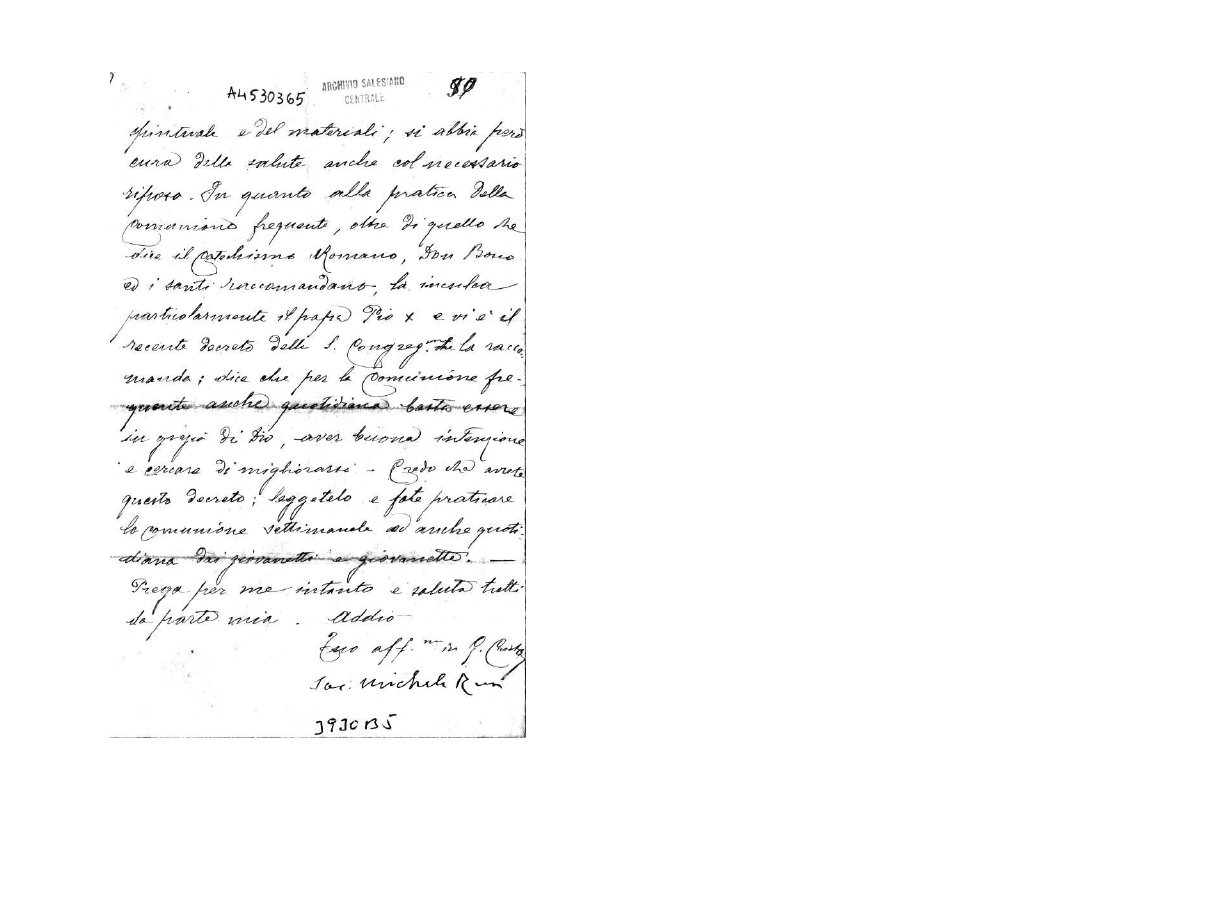 A4530365 ARCHIVIO SALESIANO CENTRALE
spirituale e del materiali; si abbia però
cura della salute anche col necessario
riposo. In quanto alla pratica della
Comunione frequente, oltre di quello che
dice il Catechismo Romano, Don Bosco
ed i santi raccomandano, la inculca
particolarmente il papa Pio X e vi è il
recente decreto della S. Congreg.ne che la racco-
manda; dice che per la Comunione fre-
quente anche quotidiana basta essere
in grazia di Dio, aver buona intenzione
e cercare di migliorarsi - Credo che avrete
questo decreto; leggetelo e fate praticare
la comunione settimanale ed anche quoti-
diana dai giovanetti e giovanette. —
Prega per me intanto e saluta tutti
da parte mia. Addio
Tuo aff.mo in G. Cristo
Sac. Michele Rua
3930B5